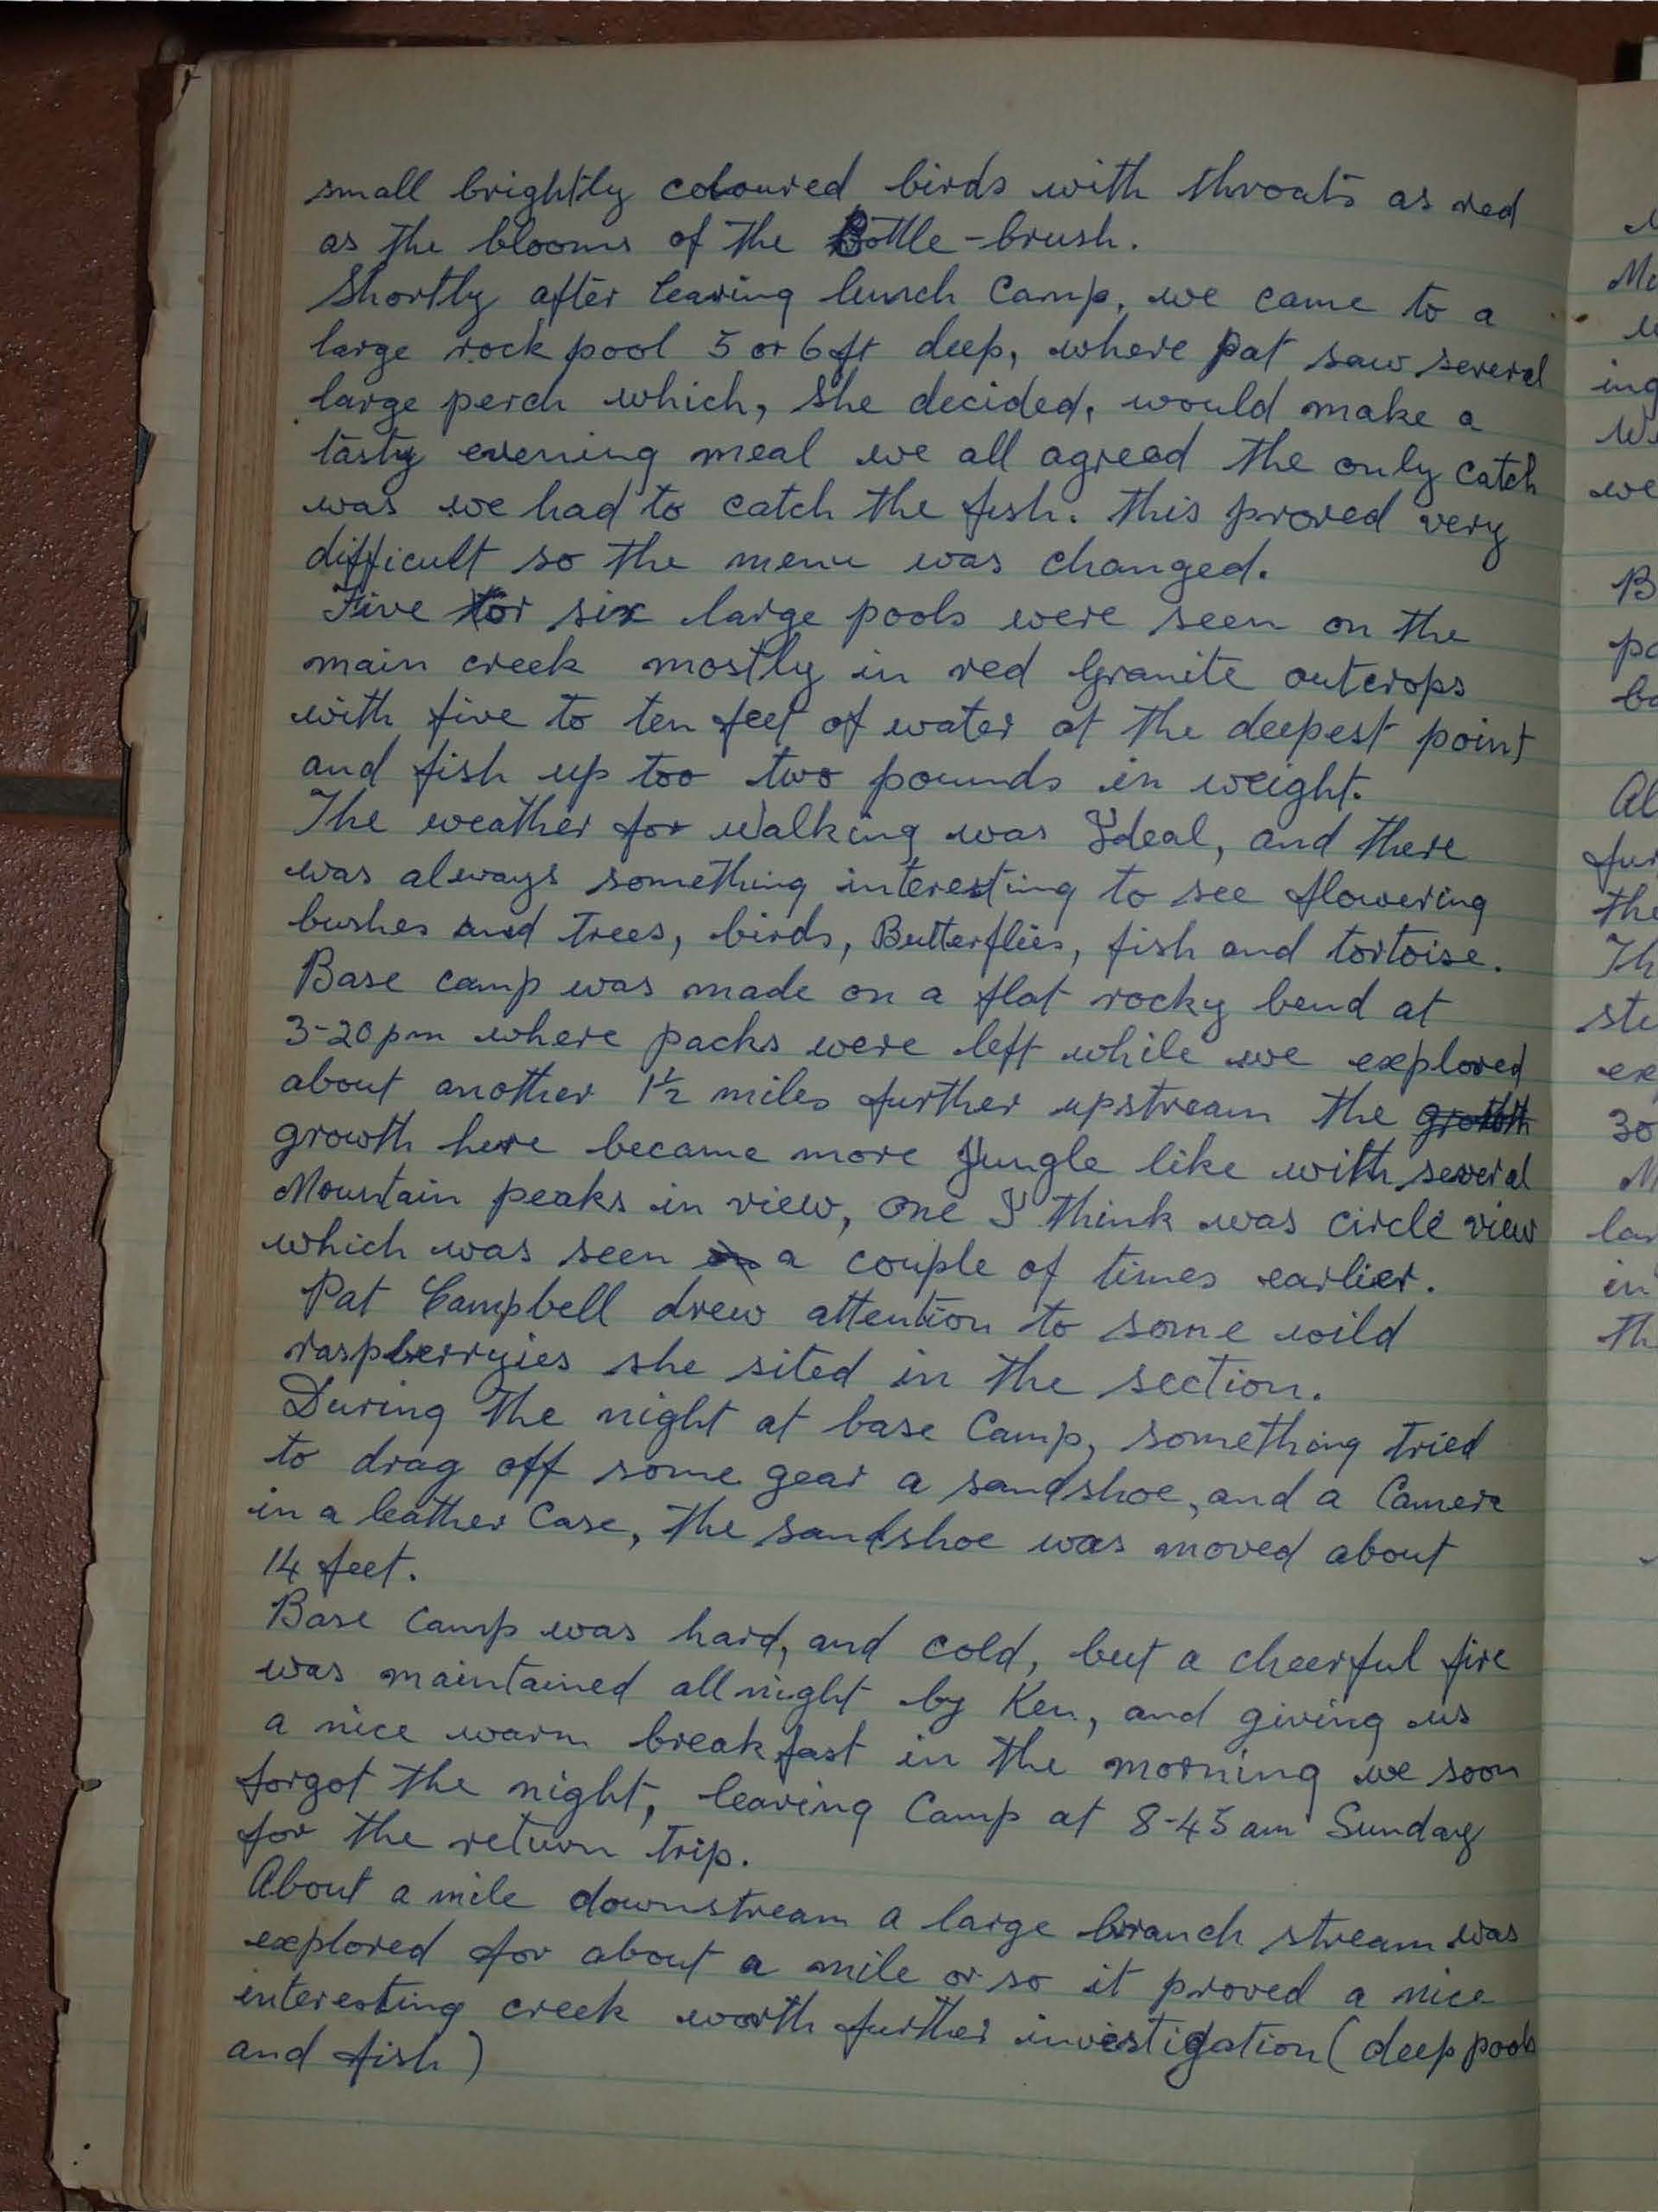 small brightly coloured birds with throats as red
as the blooms of the Bottle-brush.
Shortly after leaving lunch Camp, we came to a
large rock pool 5 or 6 ft deep, where Pat saw several
large perch which, she decided, would make a
tasty evening meal we all agreed the only catch
was we had to catch the fish. this proved very
difficult so the menu was changed.
Five or six large pools were seen on the
main creek mostly in red Granite outcrops
with five to ten feet of water at the deepest point
and fish up too two pounds in weight.
The weather for walking was Ideal, and there
was always something interesting to see flowering
bushes and trees, birds, Butterflies, fish and tortoise.
Base camp was made on a flat rocky bend at
3-20pm where packs were left while we explored
about another 1½ miles further upstream the growth
growth here became more Jungle like with several
Mountain peaks in view, one I think was circle view
which was seen a couple of times earlier.
Pat Campbell drew attention to some wild
raspberryies she sited in the section.
During the night at base Camp, something tried
to drag off some gear a sandshoe, and a Camera
in a leather Case, the sandshoe was moved about
14 feet.
Base Camp was hard, and cold, but a cheerful fire
was maintained all night by Ken, and giving us
a nice warm breakfast in the morning we soon
forgot the night, leaving Camp at 8-45 am Sunday
for the return trip.
About a mile downstream a large branch stream was
explored for about a mile or so it proved a nice
interesting creek worth further investigation (deep pools
and fish)